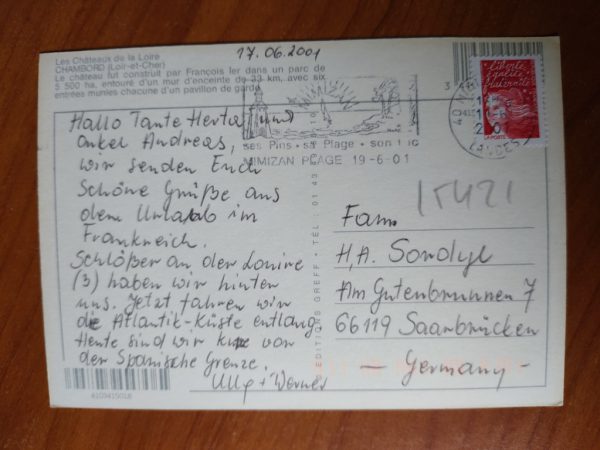 17.06.2001
Les Châteaux de la Loire
CHAMBORD (Loir-et-Cher)
Le château fut construit par François Ier dans un parc de
5 500 ha, entouré d'un mur d'enceinte de 33 km, avec six
entrées munies chacune d'un pavillon de garde.
Hallo Tante Herta und
onkel Andreas,
wir senden Euch
schöne Grüße aus
dem Urlaub in
Frankreich.
Schlößer an der Louire
(3) haben wir hinter
uns. Jetzt fahren wir
die Atlantik-Küste entlang
Heute sind wir kurz vor
der Spanische Grenze.
Ulla + Werner
4103415018
MIMIZAN
ses Pins - sa Plage - son
MIMIZAN PLAGE 19-6-01
40
LANDES
liberté
égalité
fraternité
LA POSTE
EDITIONS GREFF - TEL : 01 43
15421
Fam.
H, A. Sondyl
Am Gutenbrunnen 7
66119 Saarbrücken
- Germany -